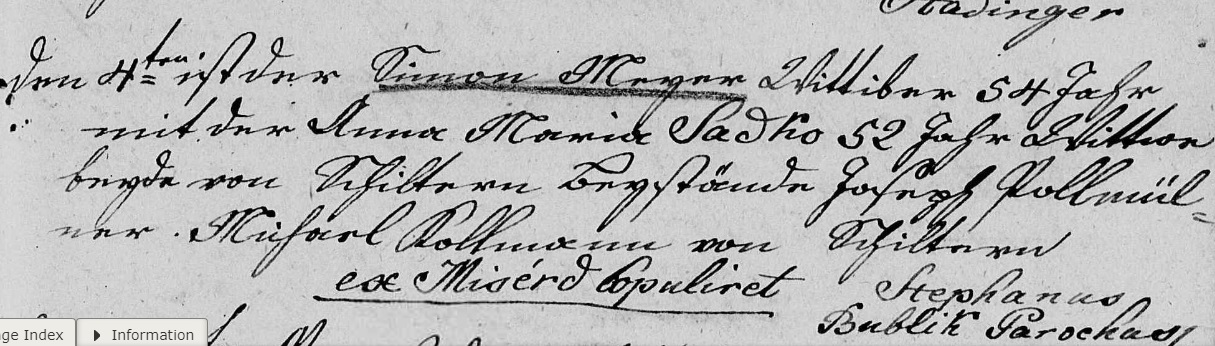 Stadinger
den 4ten ist der Simon Meyer Wittiber 54 Jahr
mit der Anna Maria Sadko 52 Jahr Wittwe
beyde von Schiltern Beystände Joseph Pollmül-
ner. Michael Kollmann von Schiltern
ex Misérd Copuliret Stephanus
Bublik Parochus
ge Index Information